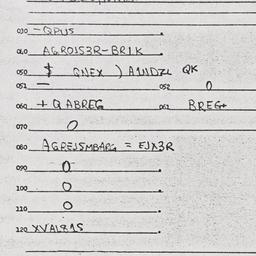 030 -QPUS.
040 AGROJS3R-BR1K.
050 $ QNEX ) A1NDZL QK
051 — 052 0
060 + QABREG 061 BREG+
070 0
080 AGREJSMBARG = EJX3R
090 0.
100 0.
110 0.
120 XVAL81S